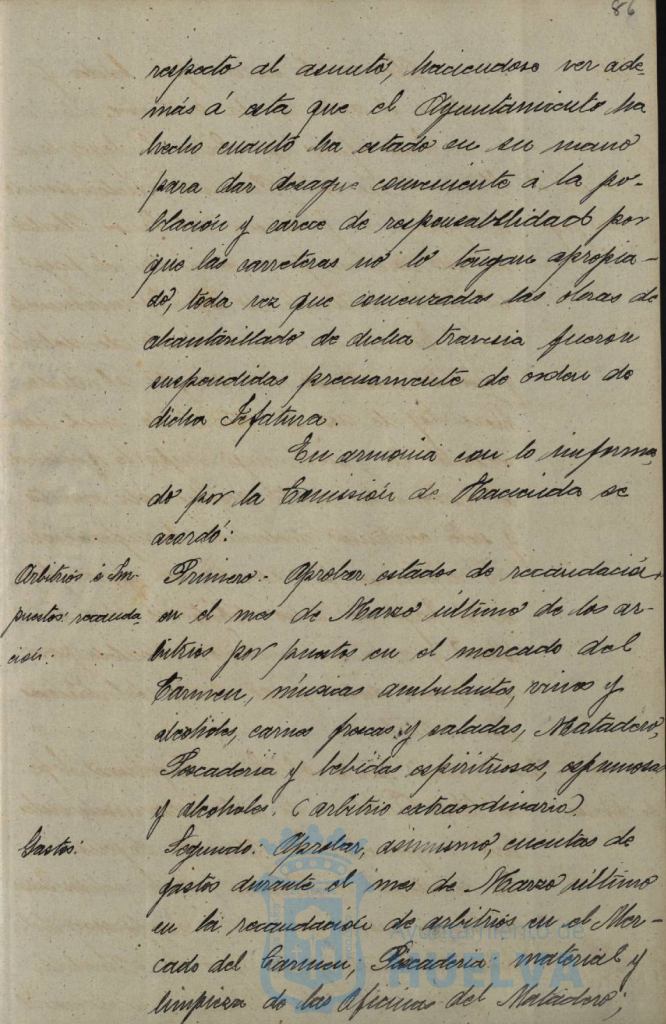 86
respecto al asunto, haciendose ver ade-
más á esta que el Ayuntamiento ha
hecho cuanto ha estado en su mano
para dar desague conveniente á la po-
blación y carece de responsabilidad por
que las carreteras no lo tengan apropia-
do, toda vez que comenzadas las obras de
alcantarillado de dicha travesia fueron
suspendidas precisamente de orden de
dicha Jefatura.
En armonia con lo informa-
do por la Comisión de Hacienda se
acordó:
Arbitrios é Im-
puestos: recauda-
ción.
Primero.- Aprobar estados de recaudación
en el mes de Marzo último de los ar-
bitrios por puestos en el mercado del
Carmen, músicas ambulantes, vinos y
alcoholes, carnes frescas y saladas, Matadero,
Pescaderia y bebidas espirituosas, espumosas
y alcoholes. (arbitrio extraordinario)
Gastos:
Segundo: Aprobar, asimismo, cuentas de
gastos durante el mes de Marzo último
en la recaudación de arbitrios en el Mer-
cado del Carmen; Pescaderia: material y
limpieza de las Oficinas del Matadero;
Ayuntamiento de
HUELVA